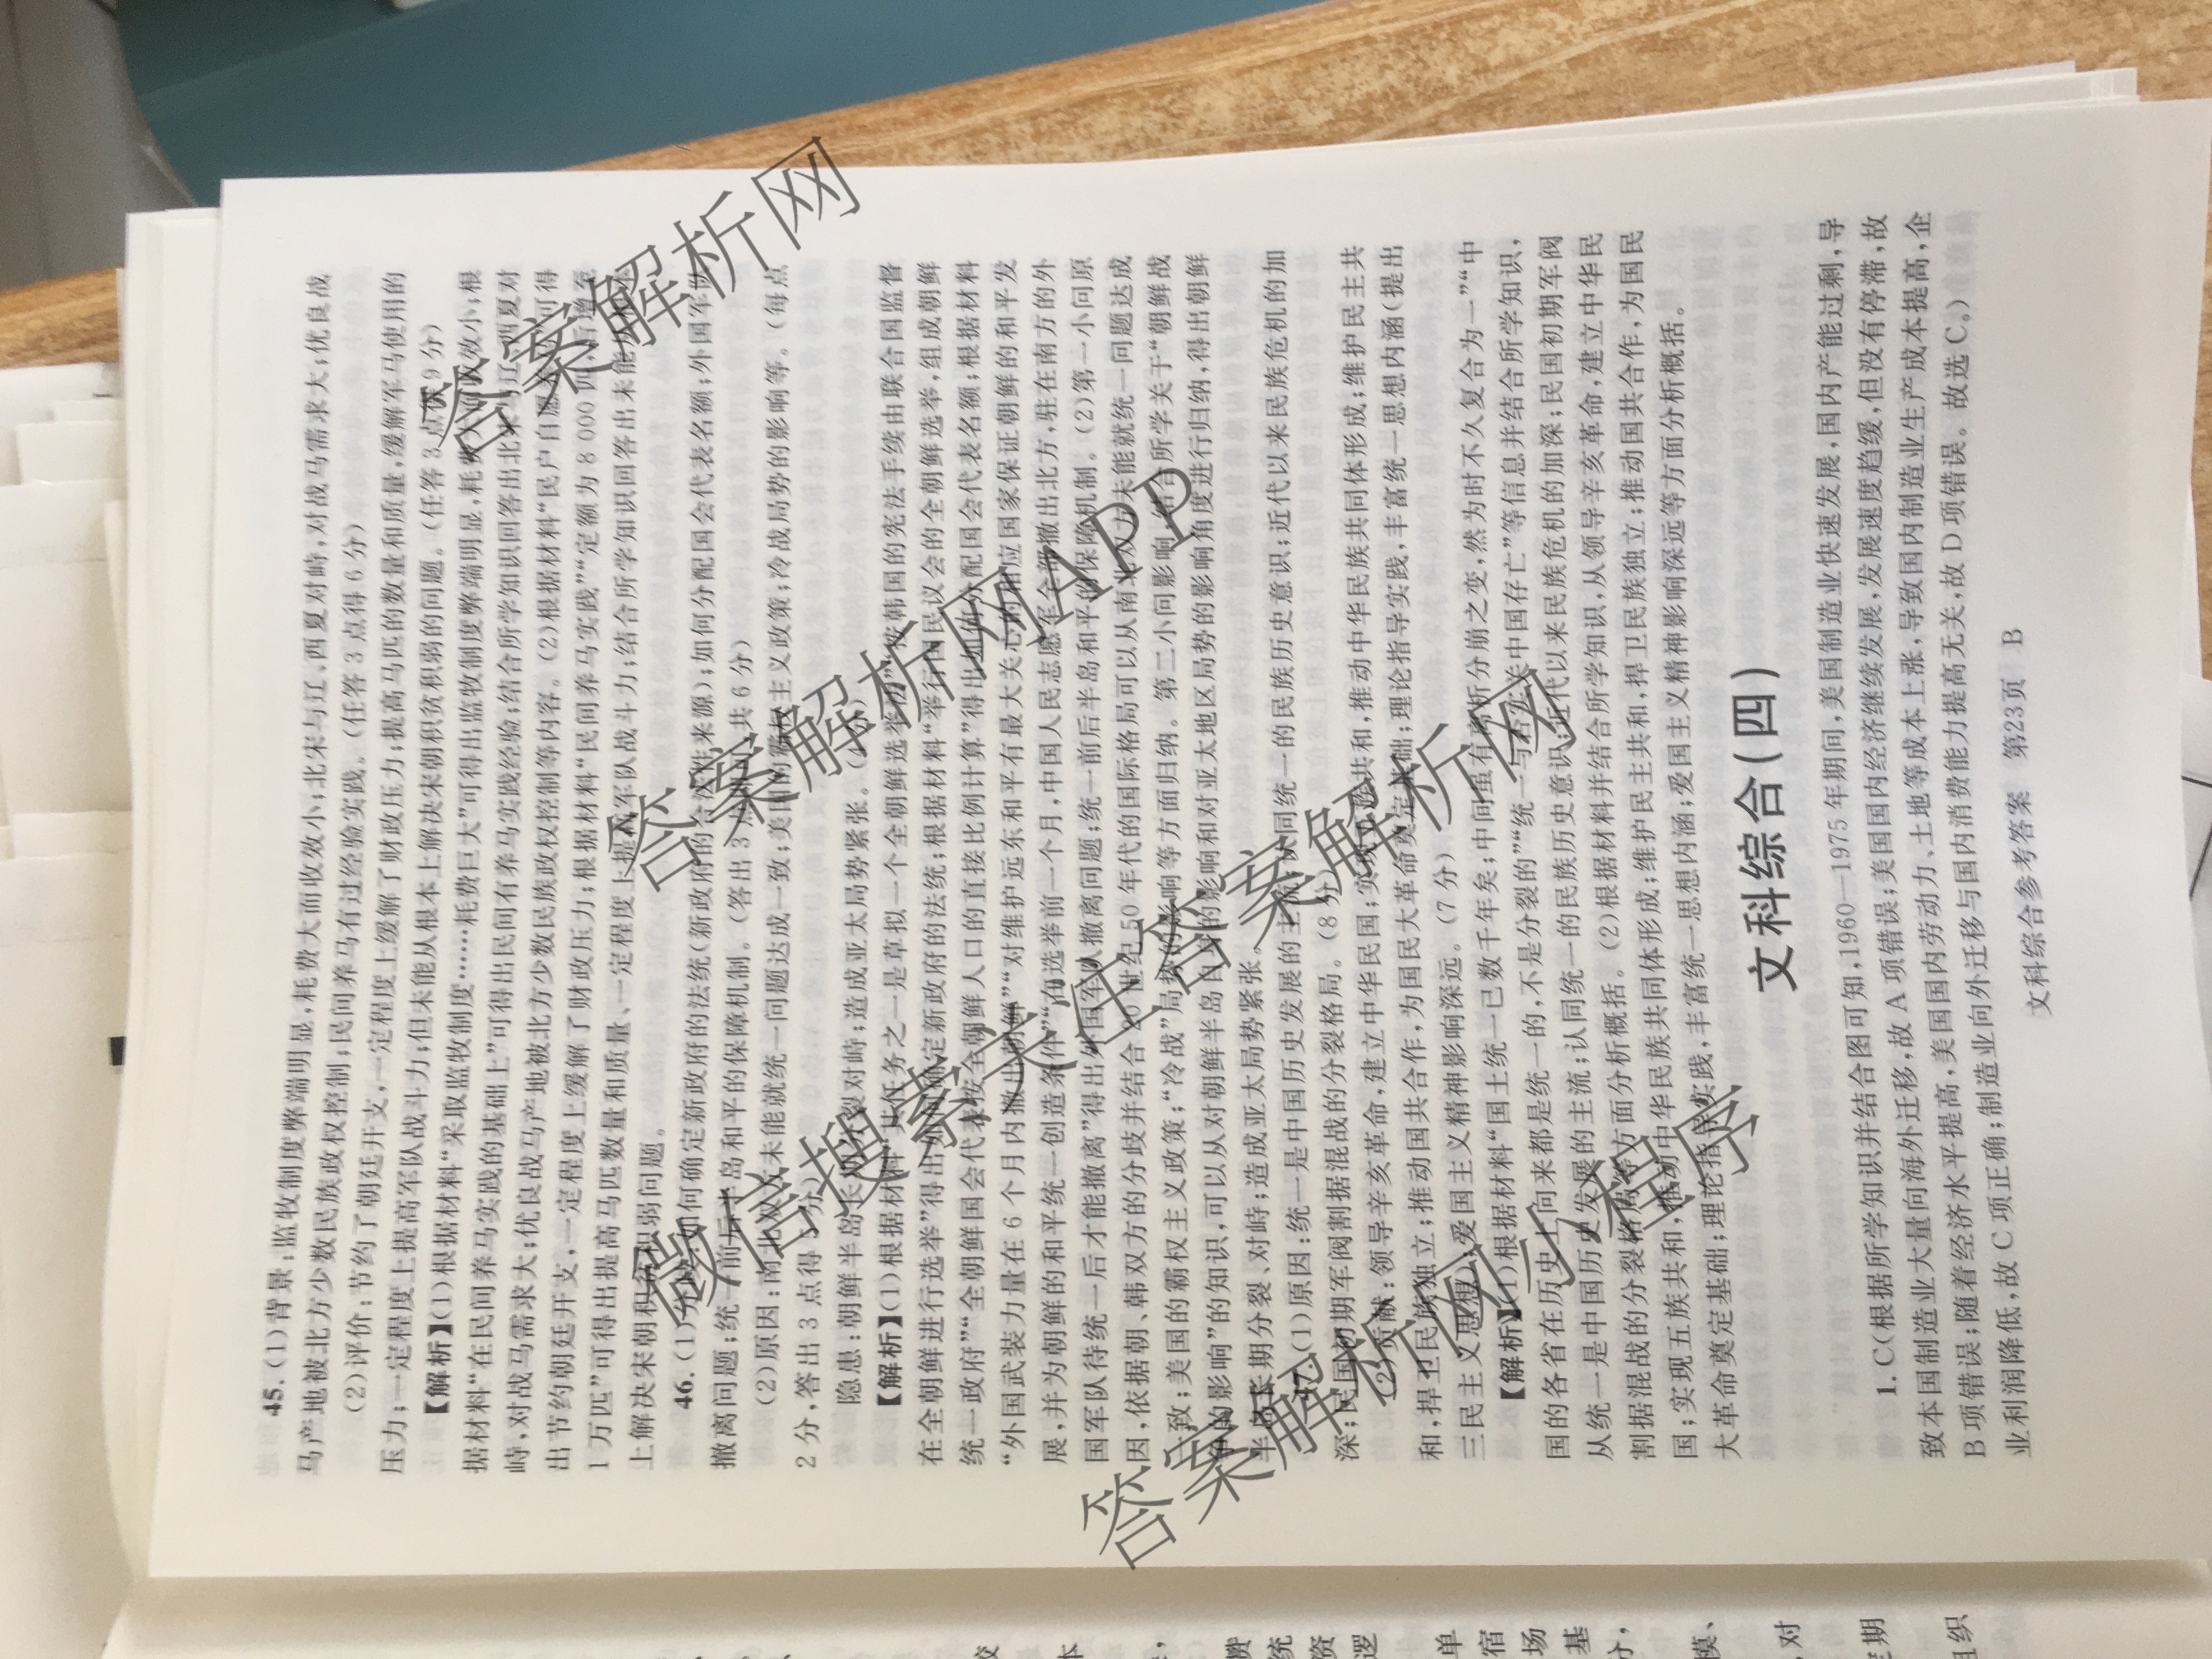 45. (1)背景:监牧制度弊端明显,耗费大而收效小;北宋与辽、西夏对峙,对战马需求大;优良战
马产地被北方少数民族政权控制;民间养马有过经验实践。(任答3点得6分)
(2)评价:节约了朝廷开支,一定程度上缓解了财政压力;提高马匹的数量和质量,缓解军马使用的
压力;一定程度上提高军队战斗力;但未能从根本上解决宋朝积贫积弱的问题。(任答3点得9分)
【解析】(1)根据材料“采取监牧制度……耗费巨大”可得出监牧制度弊端明显,耗费大而收效小;根
据材料“在民间养马实践的基础上”可得出民间有养马实践经验;结合所学知识回答出北宋与辽、西夏对
峙,对战马需求大;优良战马产地被北方少数民族政权控制等内容。(2)根据材料“民户自愿养马”可得
出节约朝廷开支,一定程度上缓解了财政压力;根据材料“民间养马实践”“定额为8 000匹,后增至
1万匹”可得出提高马匹数量和质量、一定程度上提高军队战斗力;结合所学知识回答出未能从根本
上解决宋朝积贫积弱问题。
46. (1)分歧:如何确定新政府的法统(新政府的合法性来源);如何分配国会代表名额;外国军队
撤离问题;统一前后半岛和平的保障机制。(答出3点得6分,共6分)
(2)原因:南北双方未能就统一问题达成一致;美国的霸权主义政策;冷战局势的影响等。(每点
2分,答出3点得5分)
隐患:朝鲜半岛长期分裂对峙;造成亚太局势紧张。(4分)
【解析】(1)根据材料“其任务之一是草拟一个全朝鲜选举法”“按韩国的宪法手续由联合国监督
在全朝鲜进行选举”得出如何确定新政府的法统;根据材料“举行国民议会的全朝鲜选举,组成朝鲜
统一政府”“全朝鲜国会代表按全朝鲜人口的直接比例计算”得出如何分配国会代表名额;根据材料
“外国武装力量在6个月内撤出朝鲜”“对维护远东和平有最大关心的相应国家保证朝鲜的和平发
展,并为朝鲜的和平统一创造条件”“在选举前一个月,中国人民志愿军全部撤出北方,驻在南方的外
国军队待统一后才能撤离”得出外国军队撤离问题;统一前后半岛和平的保障机制。(2)第一小问原
因,依据朝、韩双方的分歧并结合20世纪50年代的国际格局可以从南北双方未能就统一问题达成
一致;美国的霸权主义政策;“冷战”局势的影响等方面归纳。第二小问影响,结合所学关于“朝鲜战
争的影响”的知识,可以从对朝鲜半岛自身的影响和对亚太地区局势的影响角度进行归纳,得出朝鲜
半岛长期分裂、对峙;造成亚太局势紧张。
47. (1)原因:统一是中国历史发展的主流;认同统一的民族历史意识;近代以来民族危机的加
深;民国初期军阀割据混战的分裂格局。(8分)
(2)贡献:领导辛亥革命,建立中华民国;实现五族共和,推动中华民族共同体形成;维护民主共
和,捍卫民族独立;推动国共合作,为国民大革命奠定基础;理论指导实践,丰富统一思想内涵(提出
三民主义思想);爱国主义精神影响深远。(7分)
【解析】(1)根据材料“国土统一已数千年矣;中间虽有离析分崩之变,然为时不久复合为一”“中
国的各省在历史上向来都是统一的,不是分裂的”“统一与否实关中国存亡”等信息并结合所学知识,
从统一是中国历史发展的主流;认同统一的民族历史意识;近代以来民族危机的加深;民国初期军阀
割据混战的分裂格局等方面分析概括。(2)根据材料并结合所学知识,从领导辛亥革命,建立中华民
国;实现五族共和,推动中华民族共同体形成;维护民主共和,捍卫民族独立;推动国共合作,为国民
大革命奠定基础;理论指导实践,丰富统一思想内涵;爱国主义精神影响深远等方面分析概括。
文科综合(四)
1. C(根据所学知识并结合图可知,1960—1975年期间,美国制造业快速发展,国内产能过剩,导
致本国制造业大量向海外迁移,故A项错误;美国国内经济继续发展,发展速度趋缓,但没有停滞,故
B项错误;随着经济水平提高,美国国内劳动力、土地等成本上涨,导致国内制造业生产成本提高,企
业利润降低,故C项正确;制造业向外迁移与国内消费能力提高无关,故D项错误。故选C。)
文科综合参考答案 第23页 B
答案解析网
答案解析网APP
微信搜索关注答案解析网
答案解析网小程序